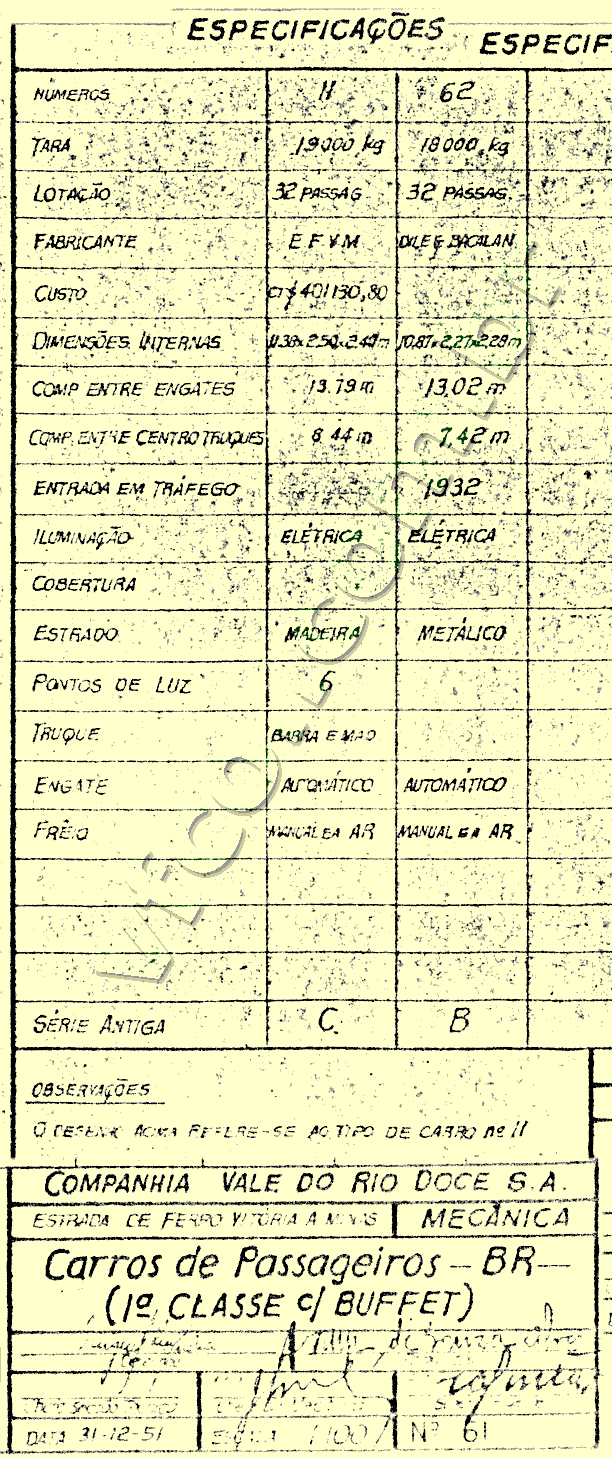 ESPECIFICAÇÕES ESPECIF
NÚMEROS 11 62
TARA 19000 kg 18000 kg
LOTAÇÃO 32 PASSAG 32 PASSAG.
FABRICANTE E F V M DYLE & BACALAN
CUSTO CR$ 401130,80
DIMENSÕES INTERNAS 11.38x2.50x2.40m 10,87x2,27x2,28m
COMP ENTRE ENGATES 13.79 m 13,02 m
COMP. ENTRE CENTRO TRUQUES 8 44 m 7,42 m
ENTRADA EM TRÁFEGO 1932
ILUMINAÇÃO ELÉTRICA ELÉTRICA
COBERTURA
ESTRADO MADEIRA METÁLICO
PONTOS DE LUZ 6
TRUQUE BARRA E
ENGATE AUTOMÁTICO AUTOMÁTICO
FRÊIO MANUAL E A AR MANUAL E A AR
SÉRIE ANTIGA C. B
OBSERVAÇÕES
O DESENHO ACIMA REFERE-SE AO TIPO DE CARRO nº 11
COMPANHIA VALE DO RIO DOCE S.A.
ESTRADA DE FERRO VITÓRIA A MINAS MECÂNICA
Carros de Passageiros - BR -
(1ª CLASSE c/ BUFFET)
DATA 31-12-51 ESCALA 1/100 Nº 61